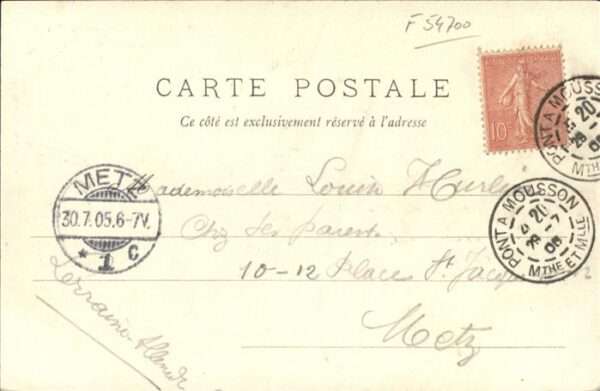 F 54700
CARTE POSTALE
Ce côté est exclusivement réservé à l'adresse
10
PONT A MOUSSON
20
29 -7
05
MTHE ET MLLE
PONT A MOUSSON
20
29 -7
05
MTHE ET MLLE
METZ
30.7.05.6-7V.
* 1 c
Mademoiselle Louise Hurlin
Chez ses parents
10-12 Place St Jacques
Metz
Lorraine-Allemde